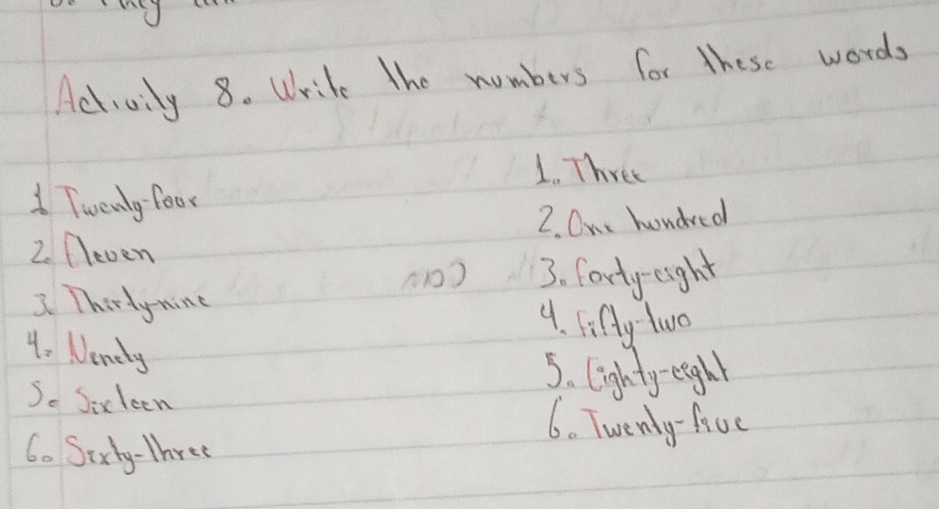 Activity 8. Write the numbers for these words
1 Twenty-four
2. Eleven
3. Thirty-nine
4. Ninety
5. Sixteen
6. Sixty-three
1. Three
2. One hundred
3. forty-eight
4. fifty-two
5. Eighty-eight
6. Twenty-five